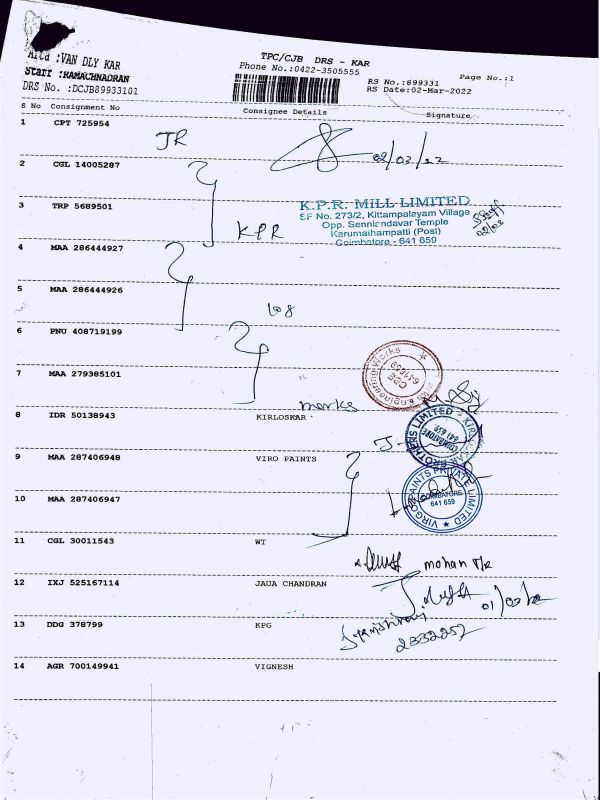 TPC/CJB DRS - KAR
Phone No.:0422-3505555
:VAN DLY KAR
:RAMACHNADRAN
DRS No. :DCJB89933101
RS No.:899331
RS Date:02-Mar-2022
Page No.:1
S No Consignment No Consignee Details Signature
1 CPT 725954
JR
02/03/22
2 CGL 14005287
3 TRP 5689501
KPR
K.P.R. MILL LIMITED
SF No. 273/2, Kittampalayam Village
Opp. Senniandavar Temple
Karumathampatti (Post)
Coimbatore - 641 659
4 MAA 286444927
5 MAA 286444926
108
6 PNU 408719199
7 MAA 279385101
marks
8 IDR 50138943 KIRLOSKAR
BROTHERS LIMITED
COIMBATORE
641 659
9 MAA 287406948 VIRO PAINTS
10 MAA 287406947
VIRGO PAINTS PRIVATE LIMITED
COIMBATORE
641 659
11 CGL 30011543 WT
mohan
12 IXJ 525167114 JAUA CHANDRAN
13 DDG 378799 KPG
2332257
14 AGR 700149941 VIGNESH